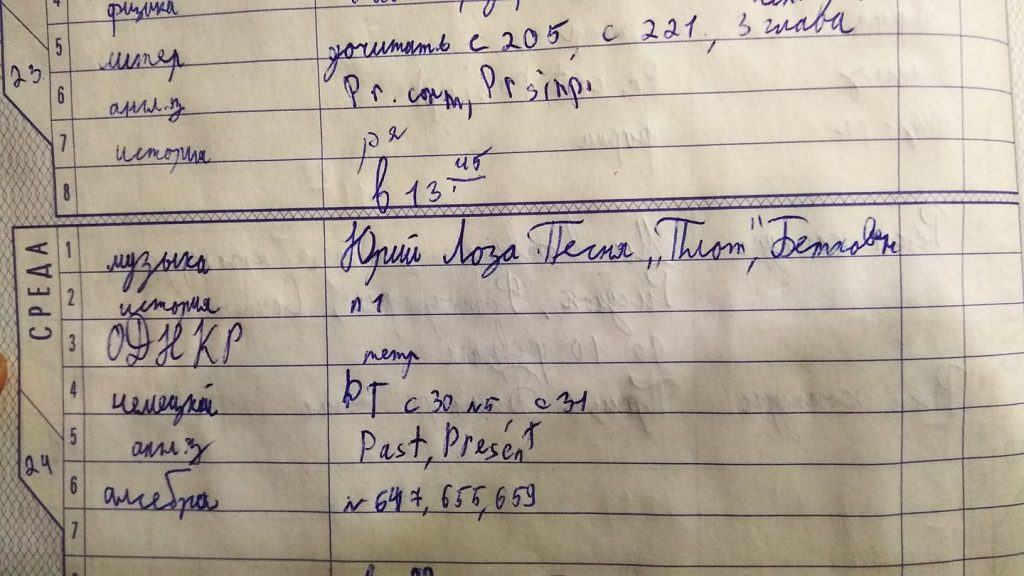 4 физика
23
5 литер дочитать с 205, с 221, 3 глава
6 англ.з Pr. conm, Pr simp.
7 история р я
8 в 13 45
СРЕДА
1 музыка Юрий Лоза Песня „Плот", Бетховен
2 история п 1
3 ОДНКР тетр
4 немецкий РТ с 30 №5, с 31
5 англ.з Past, Present
24
6 алгебра № 647, 655, 659
7